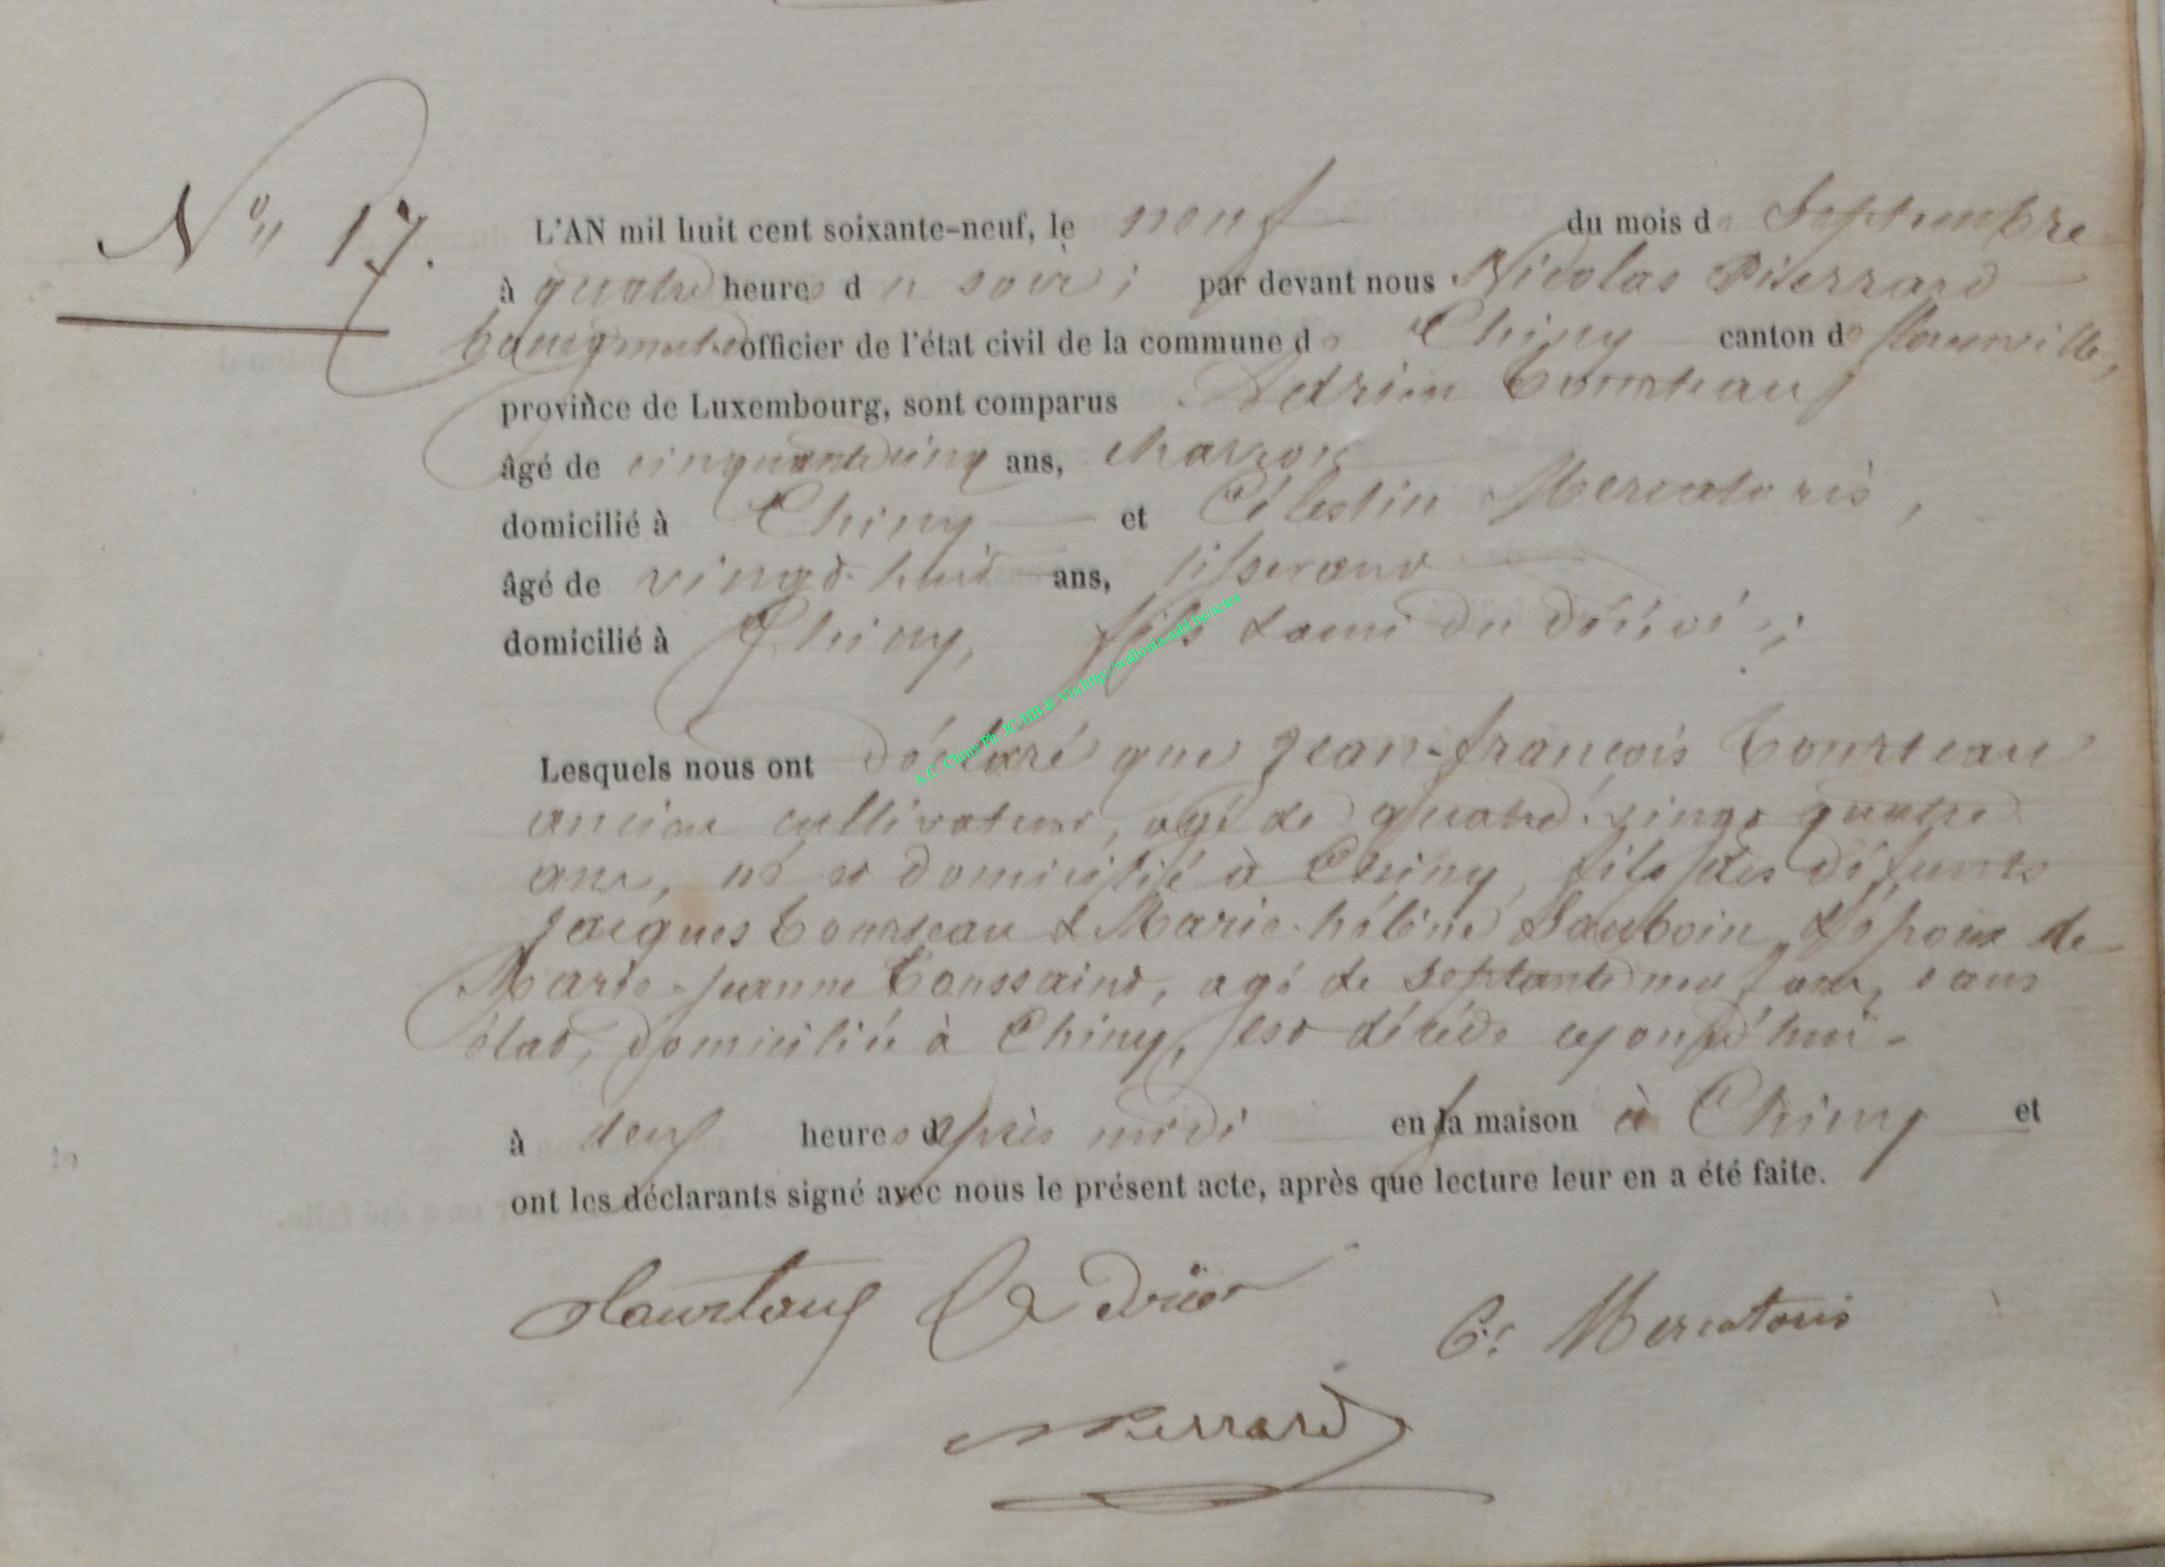 N° 17.
L'AN mil huit cent soixante-neuf, le neuf du mois de Septembre
à quatre heures du soir ; par devant nous Nicolas Pierrard
bourgmestre officier de l'état civil de la commune de Chiny canton de Florenville,
province de Luxembourg, sont comparus Adrien Tourteau
âgé de cinquante cinq ans, charron
domicilié à Chiny et Célestin Mercatoris,
âgé de vingt-huit ans, tisserand
domicilié à Chiny, fils & ami du décédé ;
Lesquels nous ont déclaré que Jean-françois Tourteau
ancien cultivateur, agé de quatre-vingt quatre
ans, né et domicilié à Chiny, fils des défunts
Jacques Tourteau & Marie-héléne Sauboin, & époux de
Marie-jeanne Toussaint, agé de septante neuf ans, sans
état, domiciliée à Chiny, est décédé cejourd'hui -
à deux heures après midi en sa maison à Chiny et
ont les déclarants signé avec nous le présent acte, après que lecture leur en a été faite.
C. Mercatoris
NPierrard